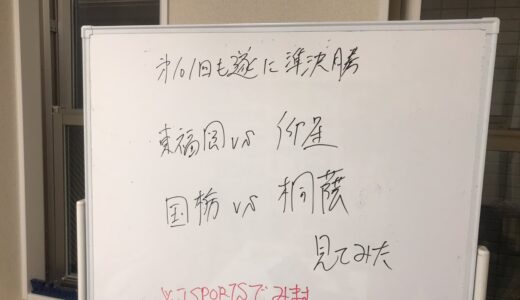 第101回も遂に準決勝
東福岡 vs 仰星
国栃 vs 桐蔭
見てみた
JSPORTSでみ